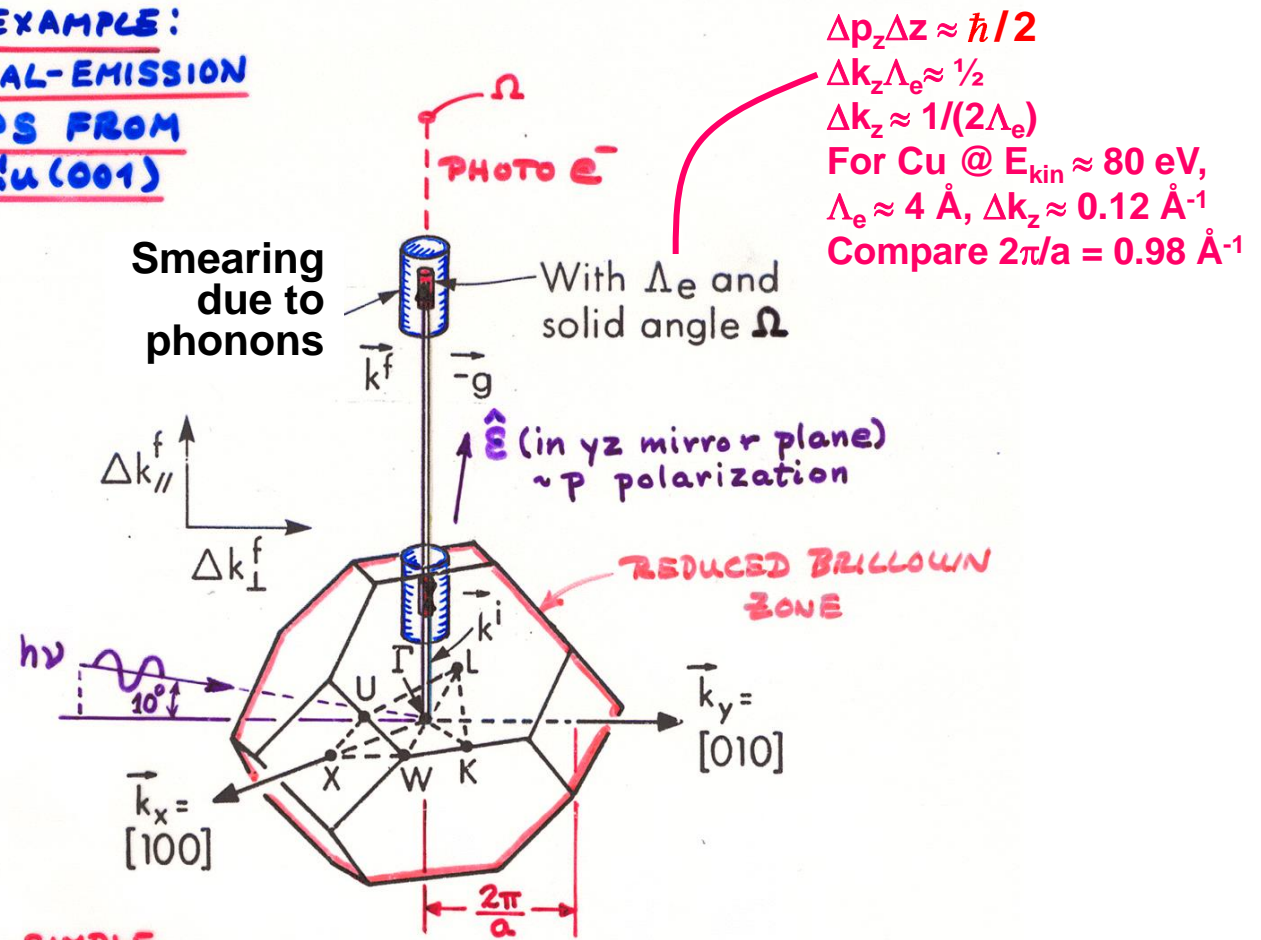 EXAMPLE:
AL-EMISSION
FROM
Cu(001)
Ω
PHOTO e⁻
Δp_zΔz ≈ ℏ/2
Δk_zΛ_e ≈ ½
Δk_z ≈ 1/(2Λ_e)
For Cu @ E_kin ≈ 80 eV,
Λ_e ≈ 4 Å, Δk_z ≈ 0.12 Å⁻¹
Compare 2π/a = 0.98 Å⁻¹
Smearing
due to
phonons
With Λe and
solid angle Ω
k⃗ᶠ
-g⃗
ε̂ (in yz mirror plane)
~p polarization
Δk∥ᶠ
Δk⊥ᶠ
REDUCED BRILLOWIN
ZONE
k⃗ⁱ
hν
10°
Γ
L
U
X
W
K
k⃗_y =
[010]
k⃗_x =
[100]
2π/a
SIMPLE